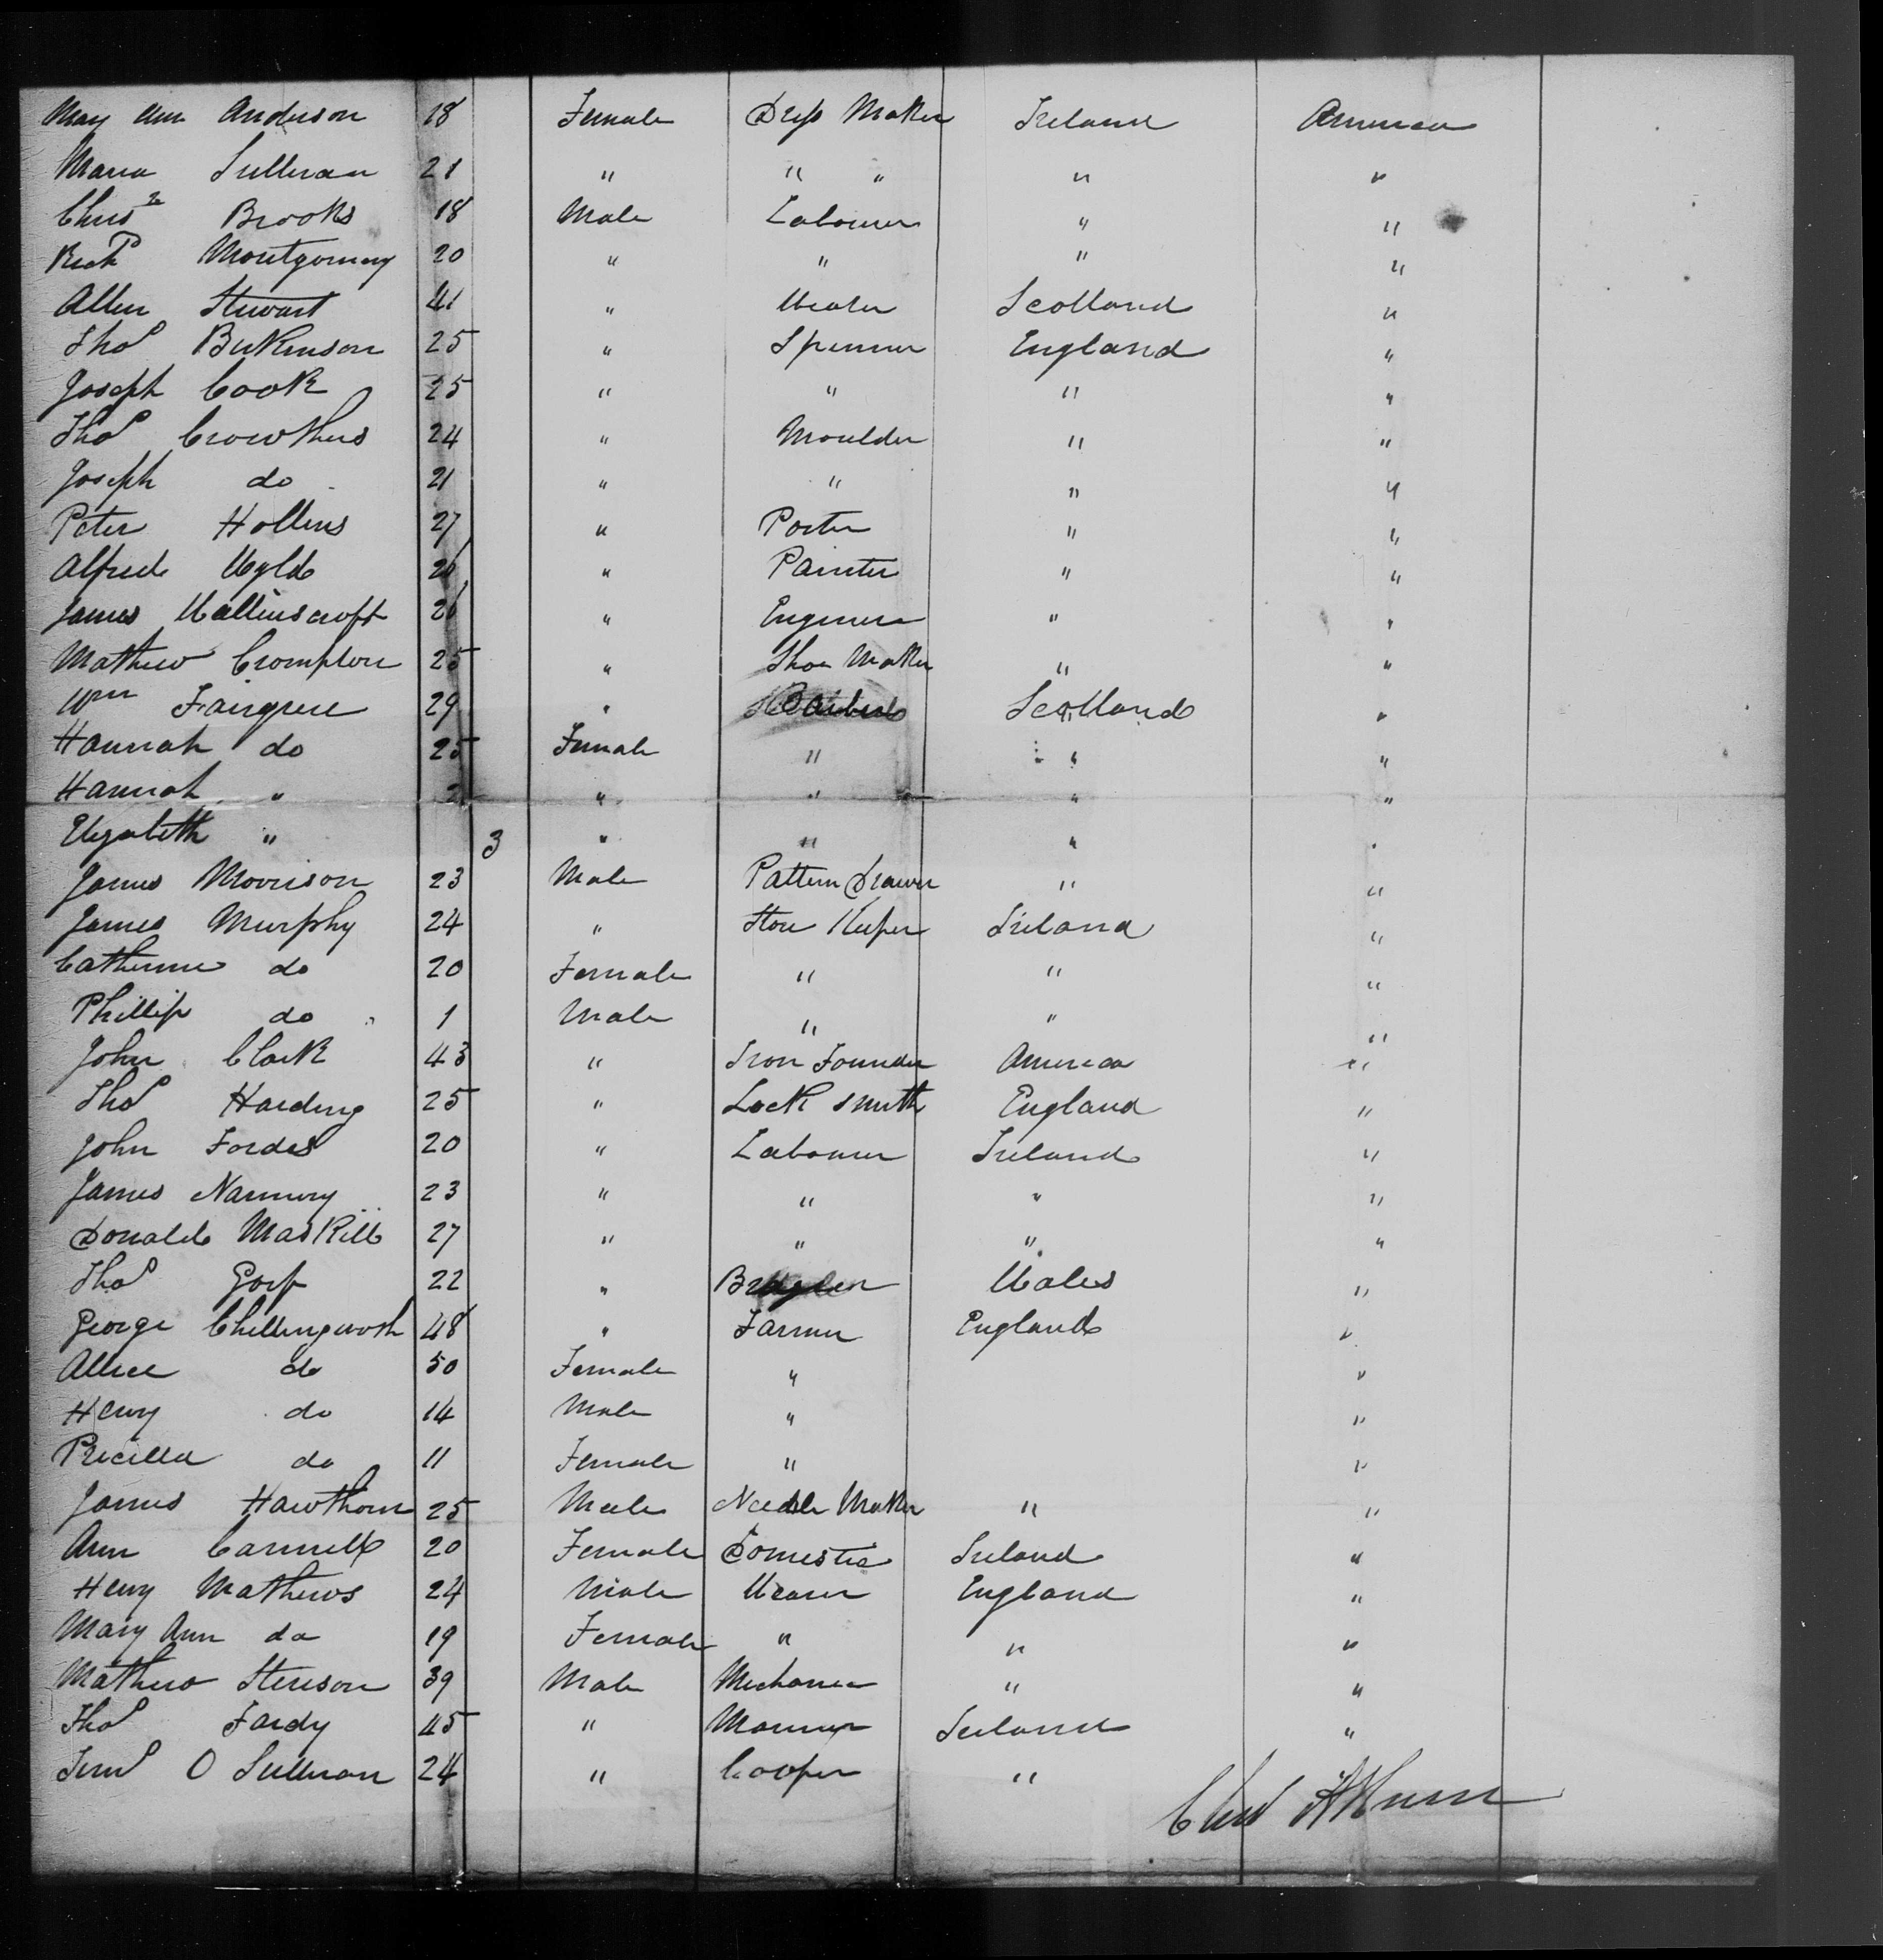 Mary Ann Anderson 18 Female Dress Maker Ireland America
Maria Sullivan 21 " " " " "
Chrisr Brooks 18 Male Labourer " "
Richd Montgomery 20 " " " "
Allen Stewart 41 " Weaver Scotland "
Thos Birkinson 25 " Spinner England "
Joseph Cook 25 " " " "
Thos Crowthers 24 " Moulder " "
Joseph do 21 " " " "
Peter Hollins 27 " Porter " "
Alfred Wyld 26 " Painter " "
James Wallinscroft 26 " Engineer " "
Mathew Crompton 25 " Shoe Maker " "
Wm Fairgree 29 " Scotland "
Hannah do 25 Female " " "
Hannah " 2 " " " "
Elizabeth " 3 " " " "
James Morrison 23 Male Pattern Drawer " "
James Murphy 24 " Store Keeper Ireland "
Catherine do 20 Female " " "
Phillip do 1 Male " " "
John Clark 43 " Iron Founder America "
Thos Harding 25 " Lock smith England "
John Fordes 20 " Labourer Ireland "
James Nannery 23 " " " "
Donald MasKill 27 " " " "
Thos Goss 22 " Wales "
George Chillingwosh 48 " Farmer England "
Allice do 50 Female " "
Henry do 14 Male " "
Precilla do 11 Female " "
James Hawthorn 25 Male Needle Maker " "
Ann Cannell 20 Female Domestic Ireland "
Henry Mathews 24 Male Weaver England "
Mary Ann do 19 Female " " "
Mathew Stevison 39 Male Mechanic " "
Thos Fardy 45 " Mariner Ireland "
O Sullivan 24 " Cooper "
Chas